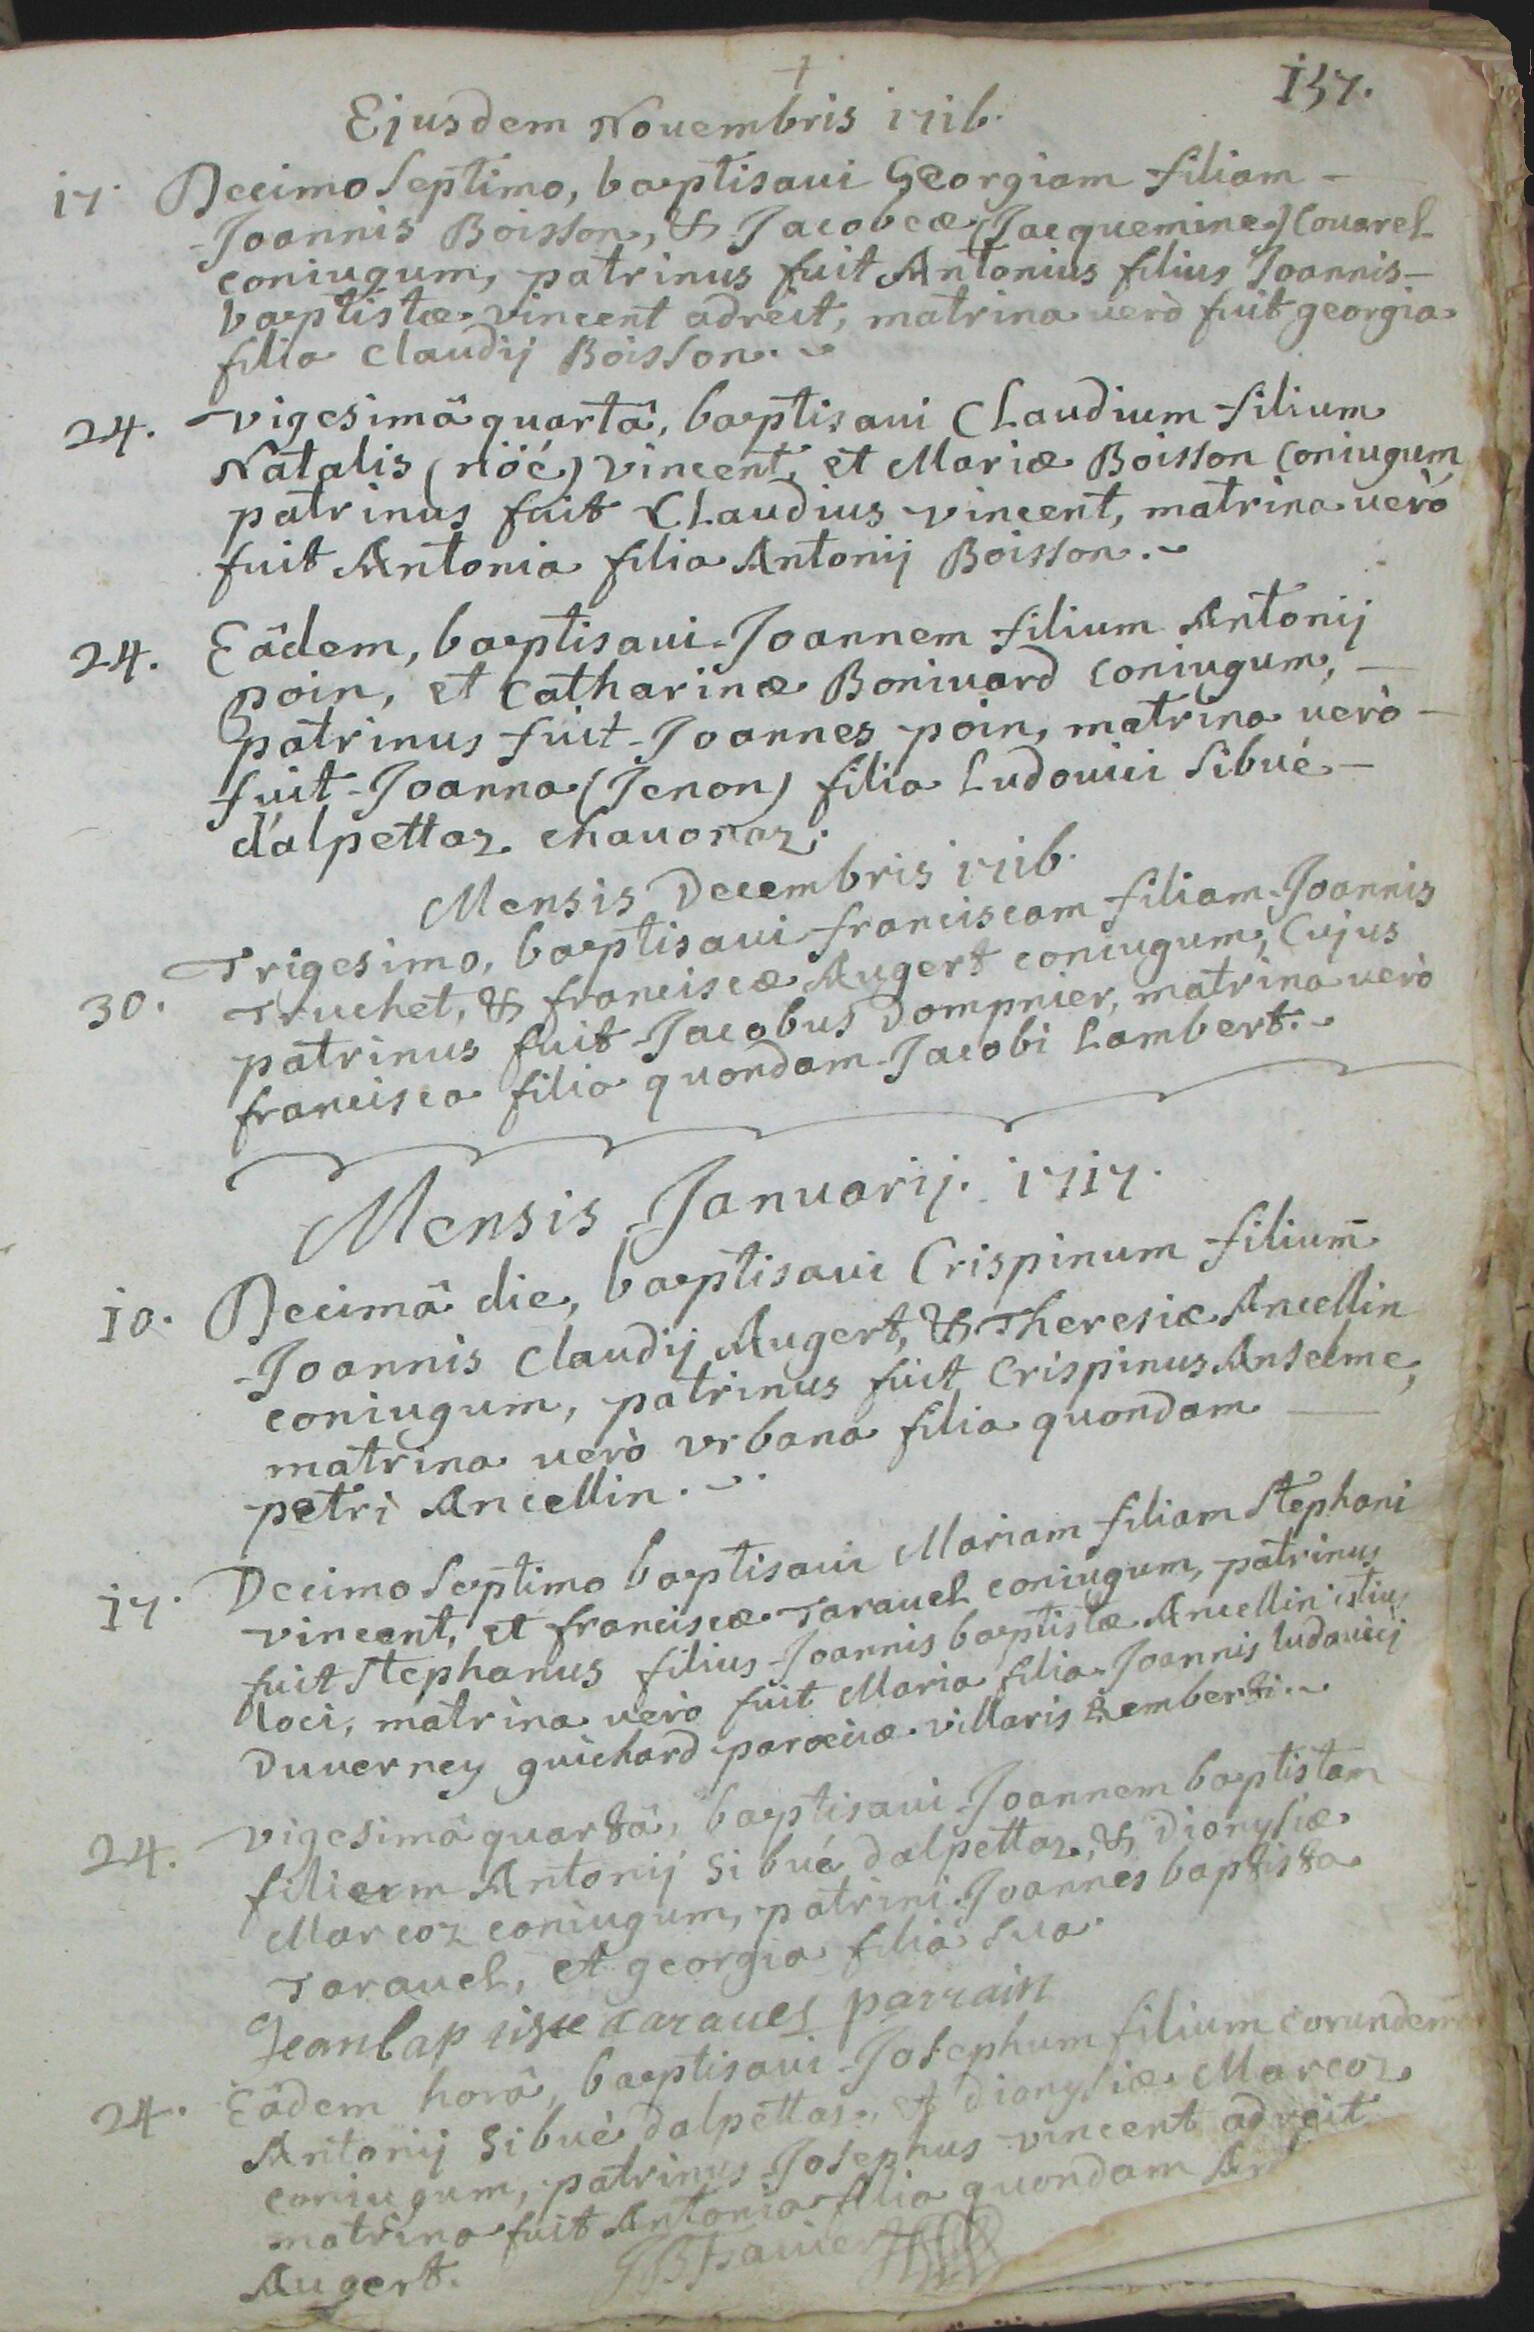 †
157.
Ejusdem Novembris 1716.
17. Decimo septimo, baptisaui Georgiam filiam -
Joannis Boisson, & Jacobeæ (Jacquemine) Couarel
coniugum, patrinus fuit Antonius filius Joannis-
baptistæ vincent adreit, matrina uerò fuit georgia
filia Claudij Boisson.
24. vigesimâ quartâ, baptisaui Claudium filium
Natalis (nöé) vincent, et Mariæ Boisson Coniugum
patrinus fuit Claudius vincent, matrina uerò
fuit Antonia filia Antonij Boisson.
24. Eâdem, baptisaui Joannem filium Antonij
poin, et Catharinæ Boniuard coniugum, -
patrinus fuit Joannes poin, matrina uerò -
fuit Joanna (Jenon) filia Ludouici Sibué -
d'alpettaz chauonaz.
Mensis Decembris 1716.
30. Trigesimo, baptisaui franciscam filiam Joannis
Truchet, & franciscæ Augert coniugum, Cujus
patrinus fuit Jacobus Dompnier, matrina uerò
francisca filia quondam Jacobi Lambert.
Mensis Januarij. 1717.
10. Decimâ die, baptisaui Crispinum filium
Joannis Claudij Augert, & Theresiæ Ancellin
coniugum, patrinus fuit Crispinus Anselme,
matrina uerò vrbana filia quondam
petri Ancellin.
17. Decimo septimo baptisaui Mariam filiam Stephani
vincent, et franciscæ Tarauel coniugum, patrinus
fuit Stephanus filius Joannis baptistæ Ancellin istius
loci, matrina uero fuit Maria filia Joannis ludouicij
Duuerney guichard parociæ villaris Remberti.
24. vigesimâ quartâ, baptisaui Joannem baptistam
filium Antonij Sibué dalpettaz, & Dionysiæ
Marcoz coniugum, patrini Joannes baptista
Tarauel, et georgia filia sua.
Jeanbaptiste tarauel parrain
24. Eâdem horâ, baptisaui Josephum filium eorundem
Antonij Sibué dalpettaz, et dionysiæ Marcoz
coniugum, patrinus Josephus vincent adreit
matrina fuit Antonia filia quondam
Augert.